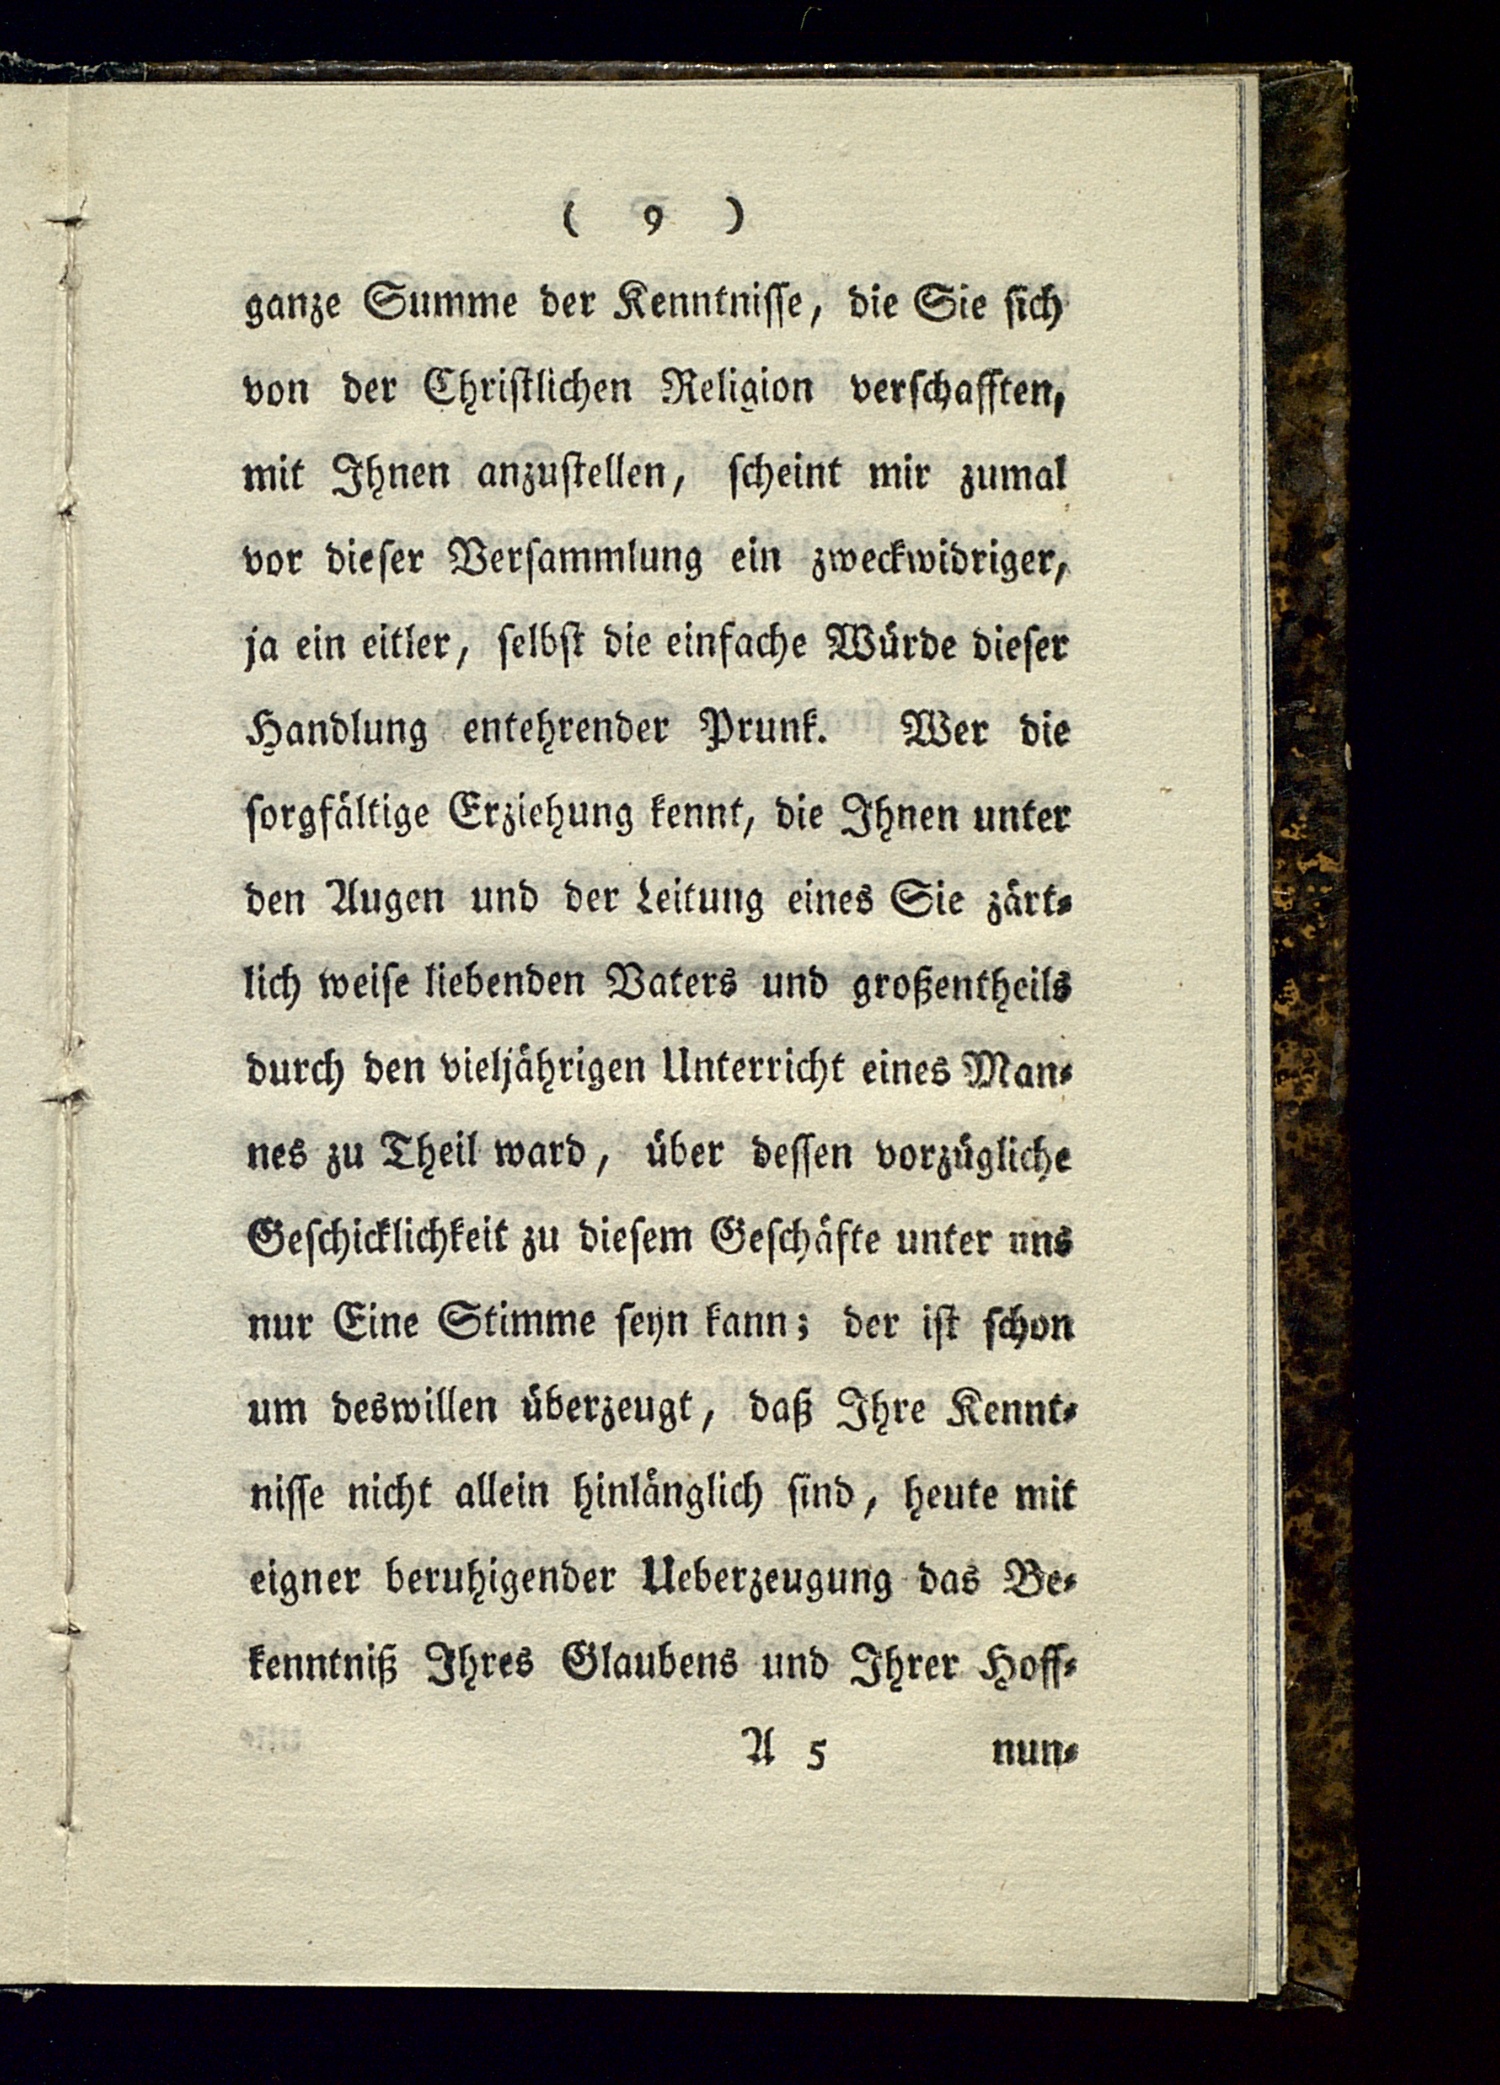 ( 9 )
ganze Summe der Kenntnisse, die Sie sich
von der Christlichen Religion verschafften,
mit Ihnen anzustellen, scheint mir zumal
vor dieser Versammlung ein zweckwidriger,
ja ein eitler, selbst die einfache Würde dieser
Handlung entehrender Prunk. Wer die
sorgfältige Erziehung kennt, die Ihnen unter
den Augen und der Leitung eines Sie zärt-
lich weise liebenden Vaters und großentheils
durch den vieljährigen Unterricht eines Man-
nes zu Theil ward, über dessen vorzügliche
Geschicklichkeit zu diesem Geschäfte unter uns
nur Eine Stimme seyn kann; der ist schon
um deswillen überzeugt, daß Ihre Kennt-
nisse nicht allein hinlänglich sind, heute mit
eigner beruhigender Ueberzeugung das Be-
kenntniß Ihres Glaubens und Ihrer Hoff-
A 5 nun-